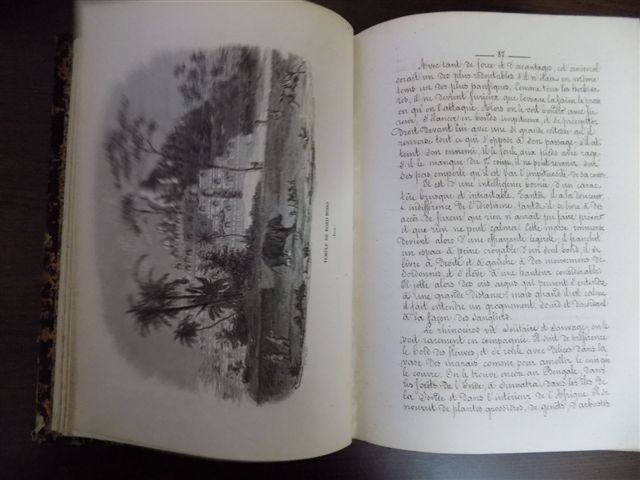 TEMPLE DE BORO-BODO
(Java.)
87
Avec tant de force et d'avantages, cet animal
serait un des plus redoutables s'il n'était en même
temps un des plus pacifiques. Comme tous les herbivo-
res, il ne devient furieux que lorsque la faim le presse
ou qu'on l'attaque. Alors on le voit bondir avec fu-
reur, s'élancer en bonds impétueux, et se précipiter
droit devant lui avec une si grande vitesse qu'il
renverse tout ce qui s'oppose à son passage. S'il at-
teint son ennemi, il le foule aux pieds avec rage;
s'il le manque du 1er coup, il ne peut revenir sur
ses pas, emporté qu'il est par l'impétuosité de sa course.
Il est d'une intelligence bornée, d'un carac-
tère brusque et intraitable. Tantôt il a la douceur,
l'indifférence de l'idiotisme, tantôt il se livre à des
accès de fureur que rien n'aurait pu faire prévoir
et que rien ne peut calmer. Cette masse énorme
devient alors d'une effrayante légèreté, il franchit
un espace à peine croyable d'un seul bond, il se
livre à droite et à gauche à des mouvements
désordonnés, et s'élève à une hauteur considérable.
Il jette alors des cris aigus qui peuvent s'entendre
à une grande distance; mais quand il est calme
il fait entendre un grognement sourd
à la façon des sangliers.
Le rhinocéros vit solitaire et sauvage, on le
voit rarement en compagnie. Il suit de préférence
le bord des fleuves, et se roule avec délices dans la
vase des marais comme pour amollir le cuir qui
le couvre. On le trouve encore au Bengale, dans
les forêts de l'Inde, à Sumatra, dans les îles de
la Sonde et dans l'intérieur de l'Afrique. Il se
nourrit de plantes grossières, de genêts, d'arbustes